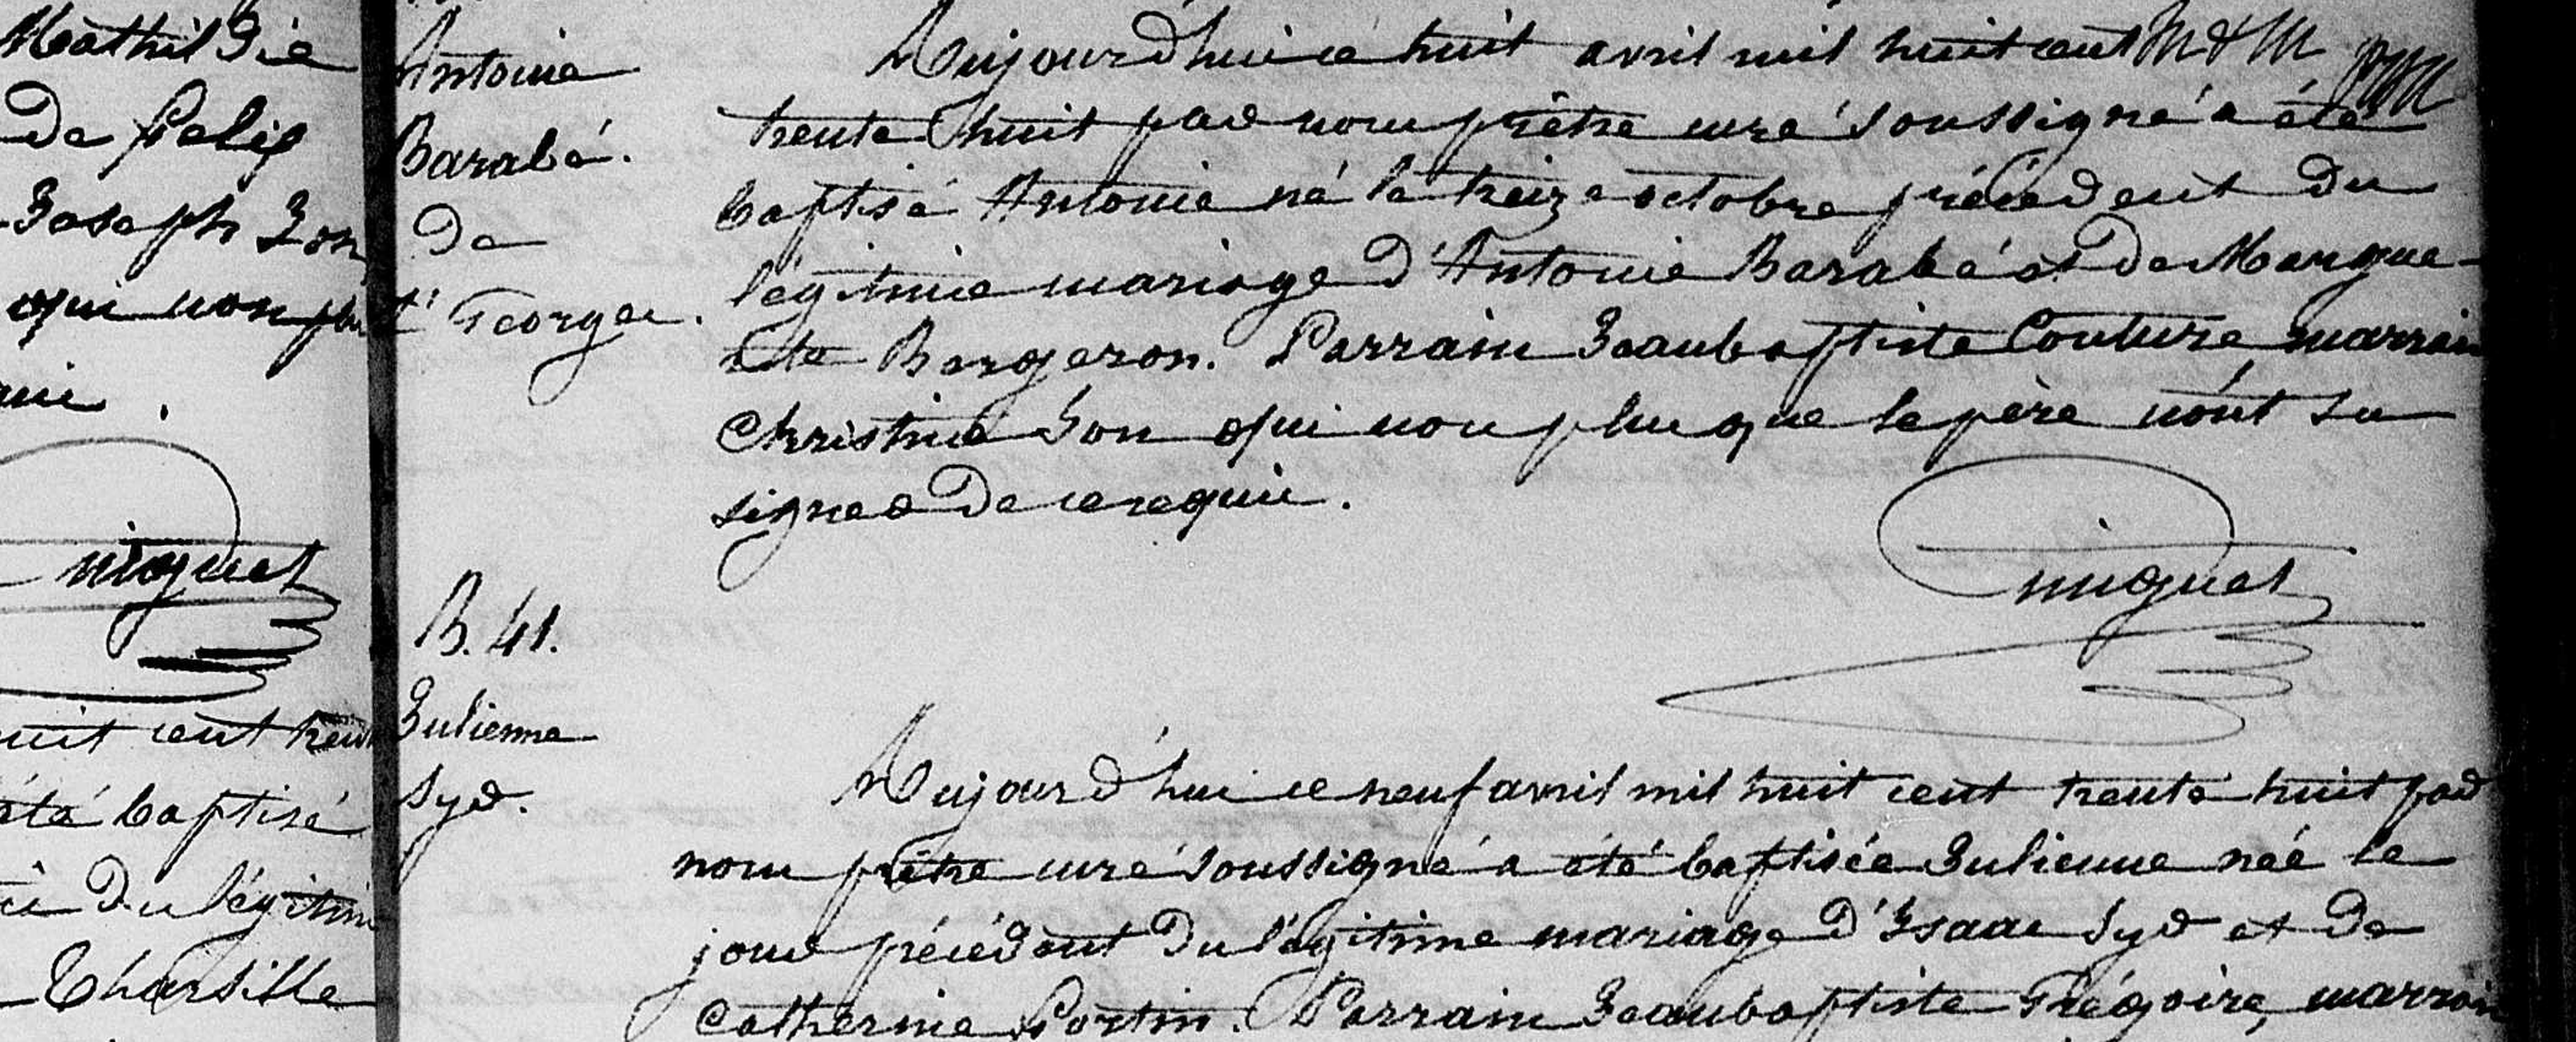 Mathildie
de Felix
Joseph Zon
qui non plu
uit cent trent
été baptisé
du légitim
Tharsille
niquet
Antoine
Barabé.
De
St Georges.
Aujourd'hui ce huit avril mil huit cent
trente huit par nous prêtre curé soussigné a été
baptisé Antoine né le treize octobre précédent du
légitime mariage d'Antoine Barabé et de Margue-
rite Bergeron. Parrain Jeanbaptiste Couture marraine
Christine Zon qui non plus que le père n'ont su
signer de ce requis.
niquet
B. 41.
Julienne
Syr.
Aujourd'hui ce neuf avril mil huit cent trente huit par
nous prêtre curé soussigné a été baptisée Julienne née le
jour précédent du légitime mariage d'Isaac Syr et de
Catherine Fortin. Parrain Jeanbaptiste Grégoire, marraine